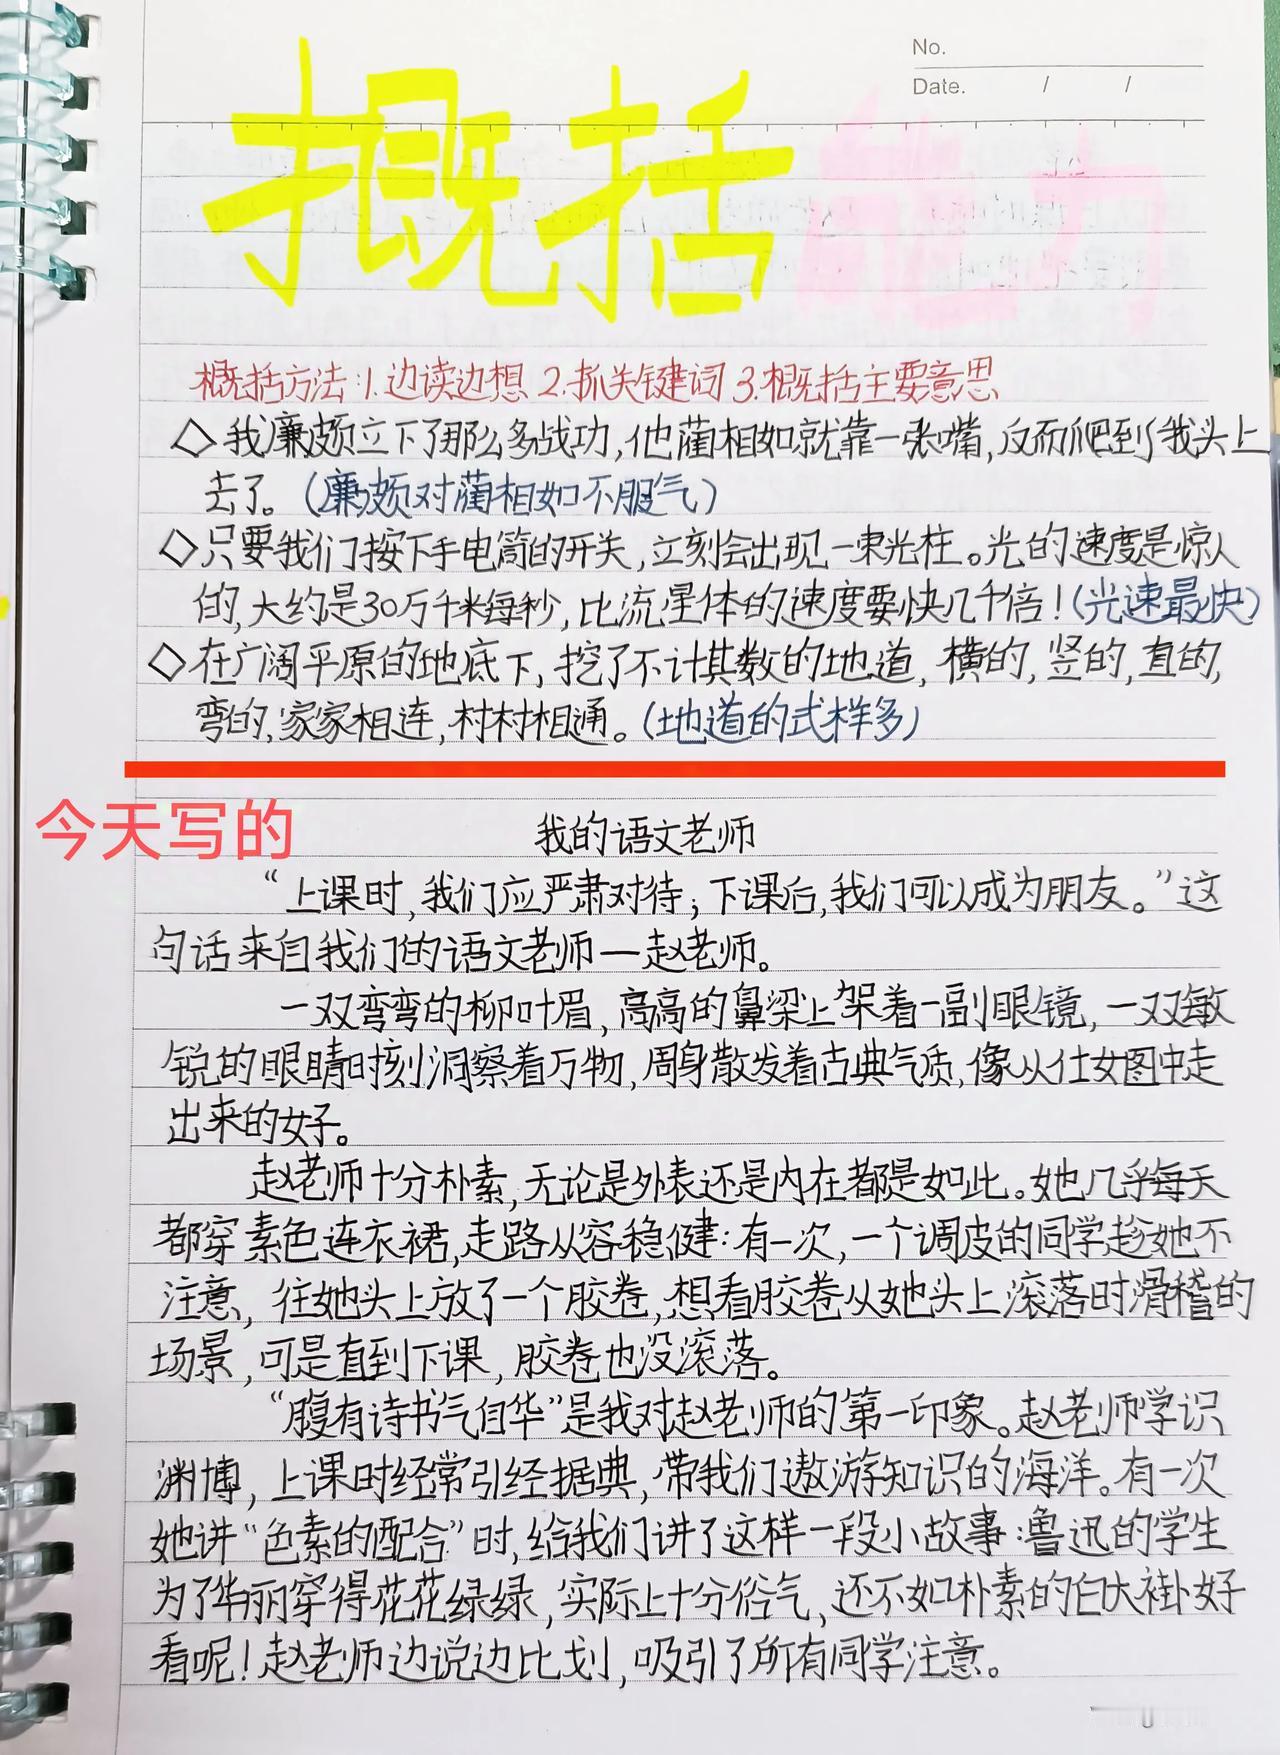 No.
Date. / /
概括能力
概括方法:1.边读边想 2.抓关键词 3.概括主要意思
◇我廉颇立下了那么多战功,他蔺相如就靠一张嘴,反而爬到我头上
去了。(廉颇对蔺相如不服气)
◇只要我们按下手电筒的开关,立刻会出现一束光柱。光的速度是惊人
的,大约是30万千米每秒,比流星体的速度要快几千倍!(光速最快)
◇在广阔平原的地底下,挖了不计其数的地道,横的,竖的,直的,
弯的,家家相连,村村相通。(地道的式样多)
今天写的
我的语文老师
“上课时,我们应严肃对待;下课后,我们可以成为朋友。”这
句话来自我们的语文老师—赵老师。
一双弯弯的柳叶眉,高高的鼻梁上架着一副眼镜,一双敏
锐的眼睛时刻洞察着万物,周身散发着古典气质,像从仕女图中走
出来的女子。
赵老师十分朴素,无论是外表还是内在都是如此。她几乎每天
都穿素色连衣裙,走路从容稳健:有一次,一个调皮的同学趁她不
注意,往她头上放了一个胶卷,想看胶卷从她头上滚落时滑稽的
场景,可是直到下课,胶卷也没滚落。
“腹有诗书气自华”是我对赵老师的第一印象。赵老师学识
渊博,上课时经常引经据典,带我们遨游知识的海洋。有一次
她讲“色素的配合”时,给我们讲了这样一段小故事:鲁迅的学生
为了华丽穿得花花绿绿,实际上十分俗气,还不如朴素的白大褂好
看呢!赵老师边说边比划,吸引了所有同学注意。